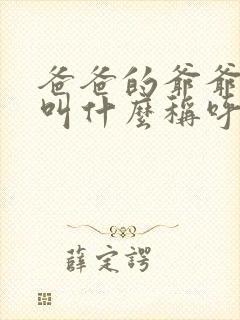 爸爸的爷爷
叫什麼稱呼
薛定諤